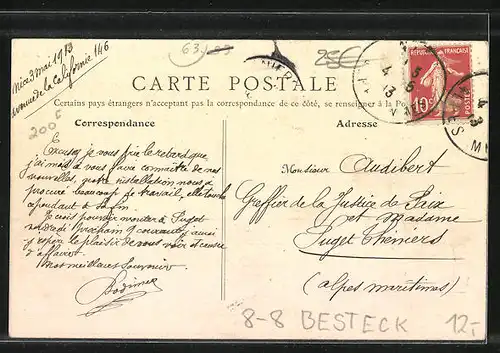 Nice 3 mai 1913
avenue de la Californie 146
63
25€
200
RÉPUBLIQUE FRANÇAISE
10c
CARTE POSTALE
Certains pays étrangers n'acceptant pas la correspondance de ce côté, se renseigner à la Poste
Correspondance
Adresse
Excusez je vous prie le retard que
j'ai mis à vous faire connaître de nos
nouvelles, notre installation nous a
procuré beaucoup de travail, elle touche
cependant à sa fin.
Je crois pouvoir monter à Puget
vendredi prochain 9 courant, j'aurai
j'espère le plaisir de vous voir et causer
d'affaires.
Mes meilleurs souvenirs
Monsieur Audibert
Greffier de la Justice de Paix
et Madame
Puget Théniers
(alpes maritimes)
8-8 BESTECK 12.-